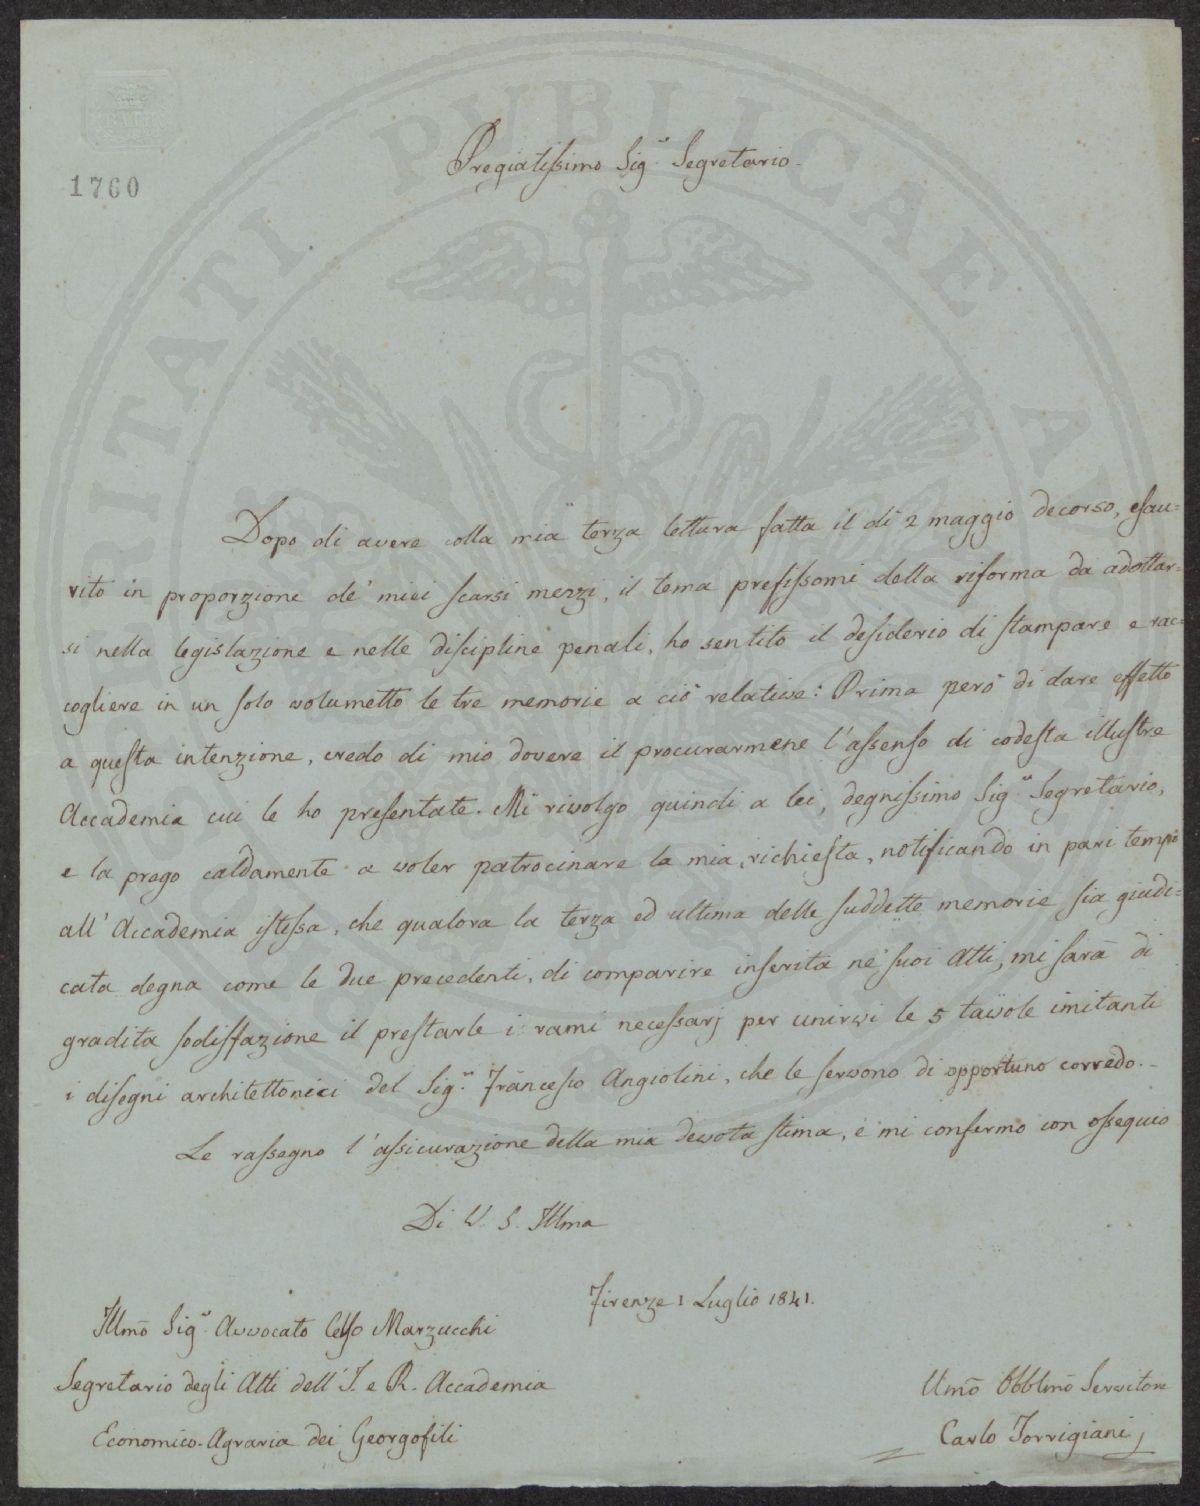 1760
Pregiatissimo Sig.r Segretario.
Dopo di avere colla mia terza lettura fatta il dì 2 maggio decorso, esau-
rito in proporzione de' miei scarsi mezzi, il tema prefissomi della riforma da adottar-
si nella legislazione e nelle discipline penali, ho sentito il desiderio di stampare e rac-
cogliere in un solo volumetto le tre memorie a ciò relative: Prima però di dare effetto
a questa intenzione, credo di mio dovere il procurarmene l'assenso di codesta illustre
Accademia cui le ho presentate. Mi rivolgo quindi a lei, degnissimo Sig.r Segretario,
e la prego caldamente a voler patrocinare la mia richiesta, notificando in pari tempo
all'Accademia istessa, che qualora la terza ed ultima delle suddette memorie sia giudi-
cata degna come le due precedenti, di comparire inserita ne' suoi Atti, mi sarà di
gradita sodisfazione il prestarle i rami necessarj per unirvi le 5 tavole imitanti
i disegni architettonici del Sig.r Francesco Angiolini, che le servono di opportuno corredo.-
Le rassegno l'assicurazione della mia devota stima, e mi confermo con ossequio
Di V. S. Illma
Firenze 1 Luglio 1841.
Illmo Sig.r Avvocato Celso Marzucchi
Segretario degli Atti dell'I. e R. Accademia
Economico-Agraria dei Georgofili
Umo Obblmo Servitore
Carlo Torrigiani
VERITATI PUBLICAE